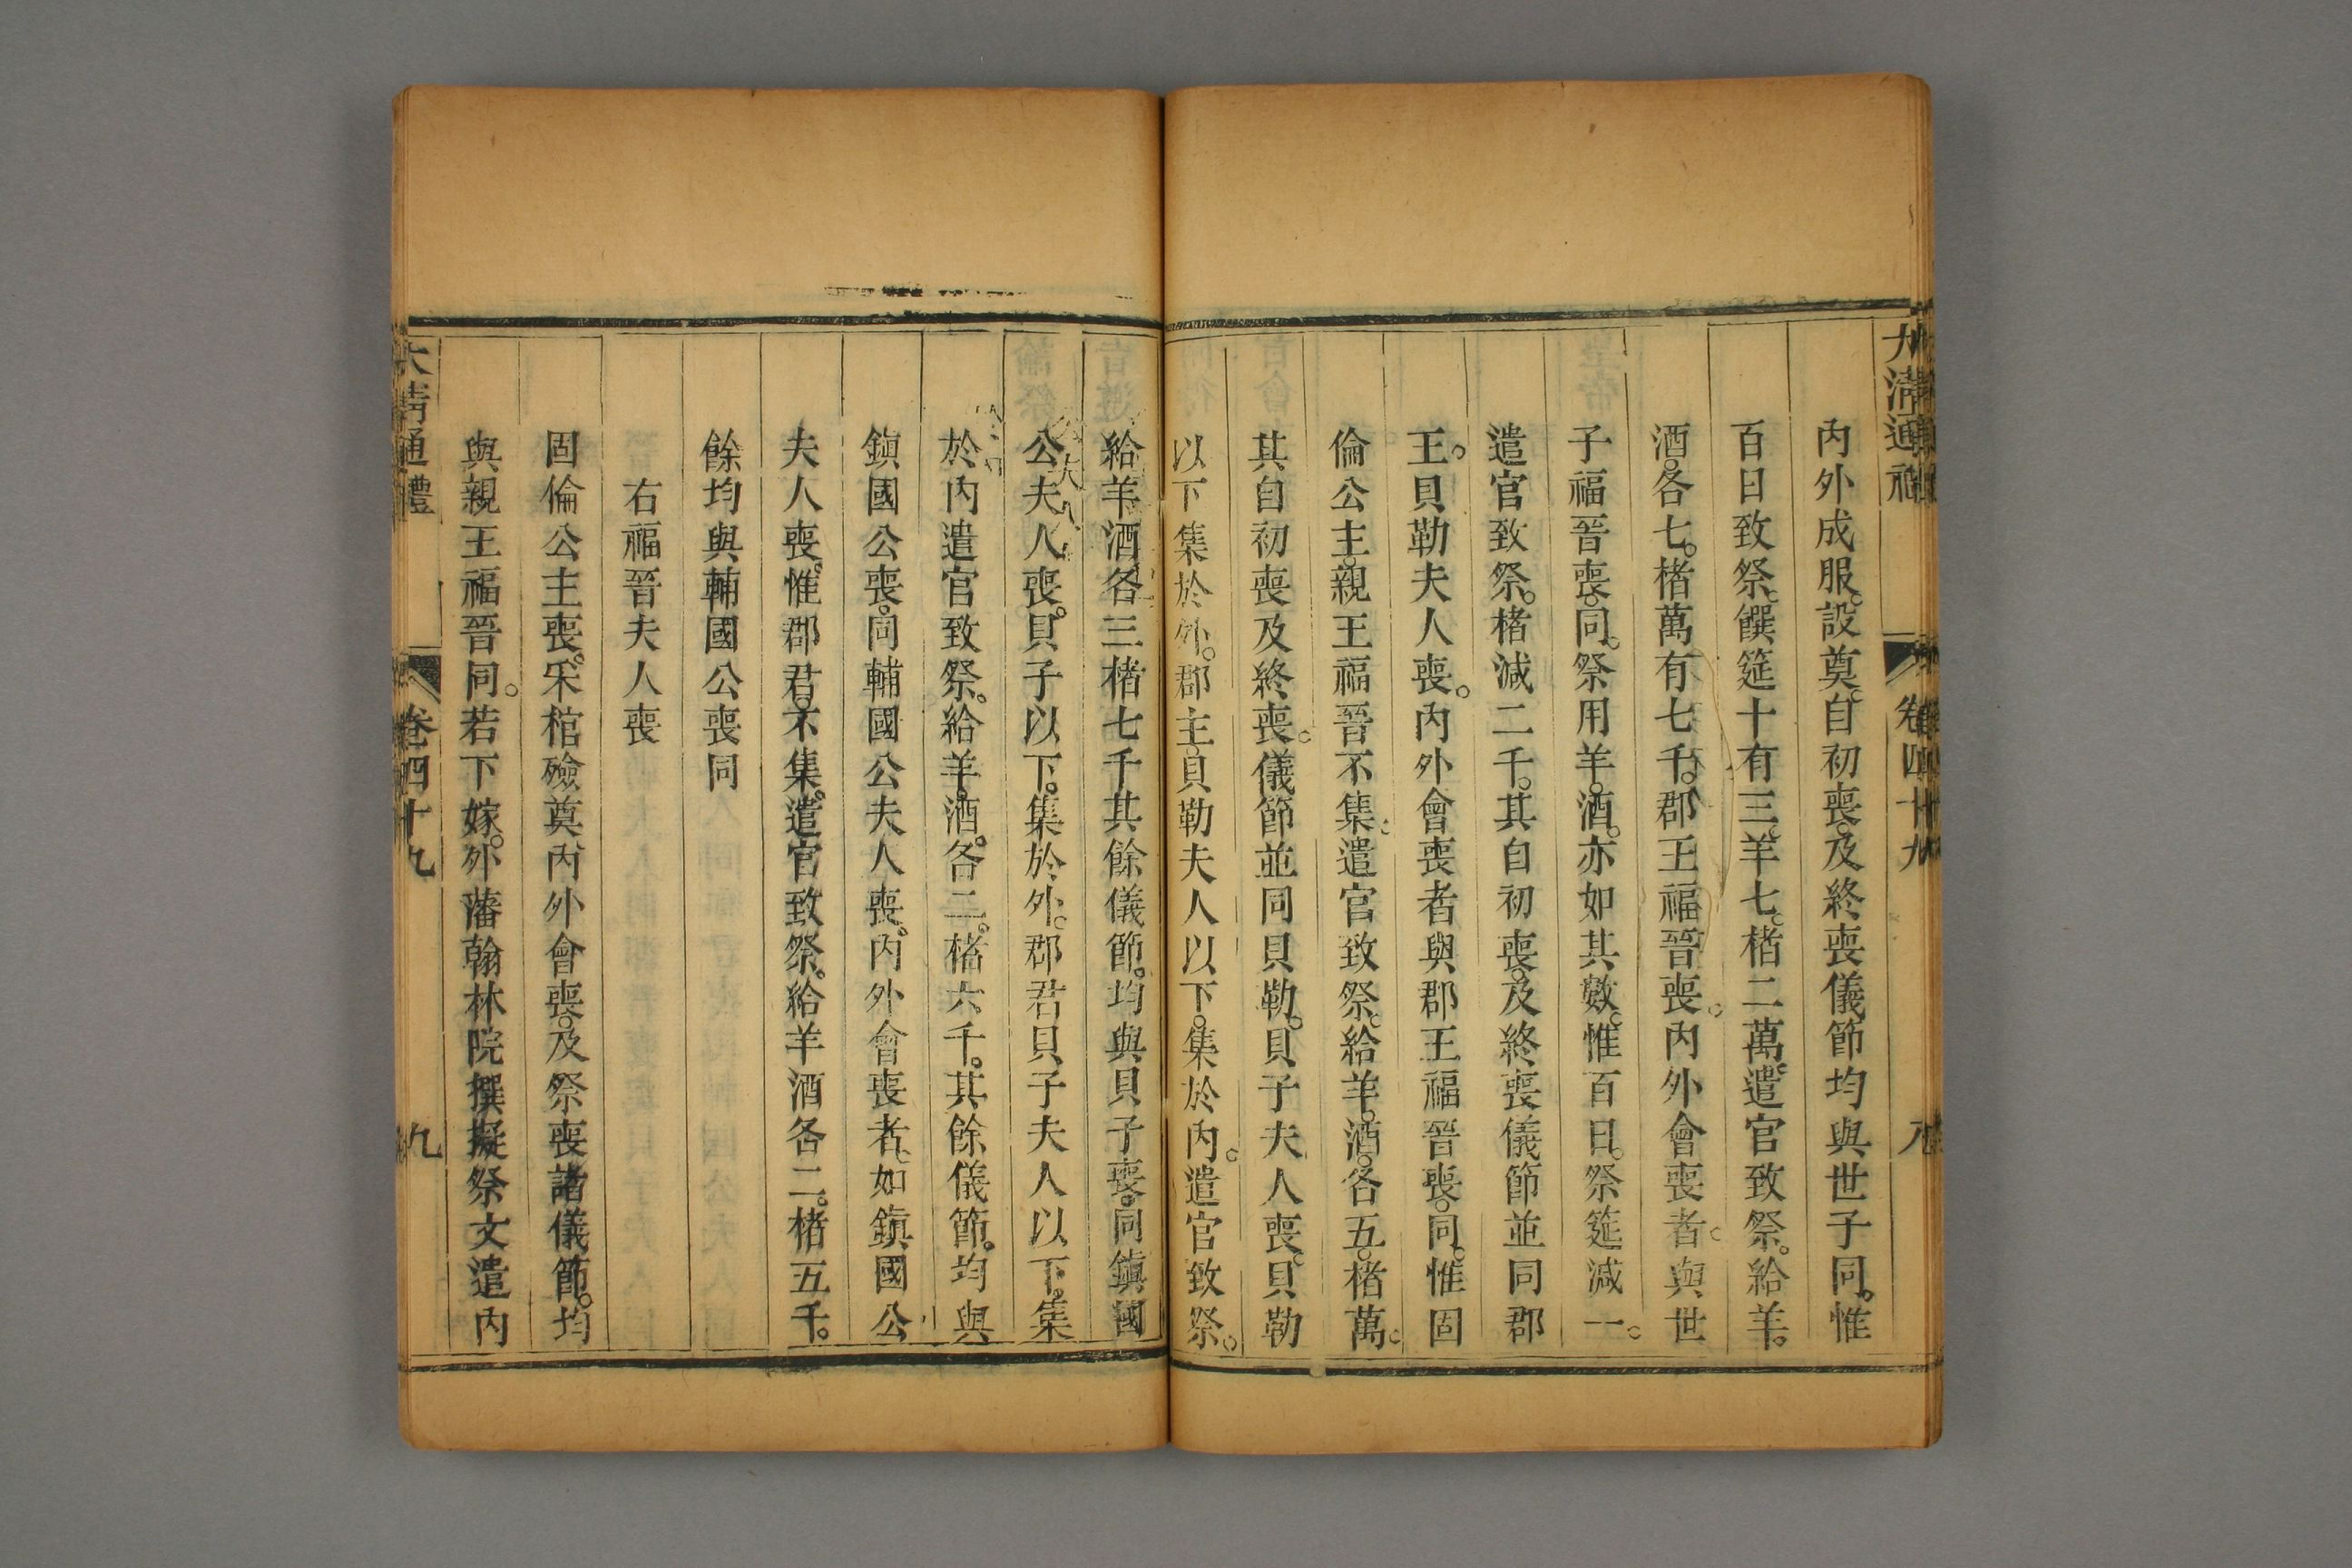 大淸通禮 卷四十九 八
內外成服。設奠。自初喪。及終喪儀節均與世子同。惟
百日致祭。饌筵十有三。羊七。楮二萬。遣官致祭。給羊。
酒。各七。楮萬有七千。郡王福晉喪。內外會喪者。與世
子福晉喪。同。祭用羊。酒。亦如其數。惟百日。祭筵減一。
遣官致祭。楮減二千。其自初喪。及終喪儀節並同郡
王。貝勒夫人喪。內外會喪者與郡王福晉喪。同。惟固
倫公主。親王福晉不集。遣官致祭。給羊。酒。各五。楮萬。
其自初喪及終喪。儀節並同貝勒。貝子夫人喪。貝勒
以下集於外。郡主。貝勒夫人以下。集於內。遣官致祭。
給羊酒各三楮七千其餘儀節。均與貝子喪。同鎭國
公夫人喪。貝子以下。集於外。郡君貝子夫人以下。集
於內遣官致祭。給羊。酒。各二。楮六千。其餘儀節。均與
鎭國公喪。同輔國公夫人喪。內外會喪者。如鎭國公
夫人喪。惟郡君。不集。遣官致祭。給羊酒各二。楮五千。
餘均與輔國公喪同
右福晉夫人喪
固倫公主喪。采棺殮奠。內外會喪。及祭喪諸儀節。均
與親王福晉同。若下嫁。外藩翰林院撰擬祭文遣內
大淸通禮 卷四十九 九